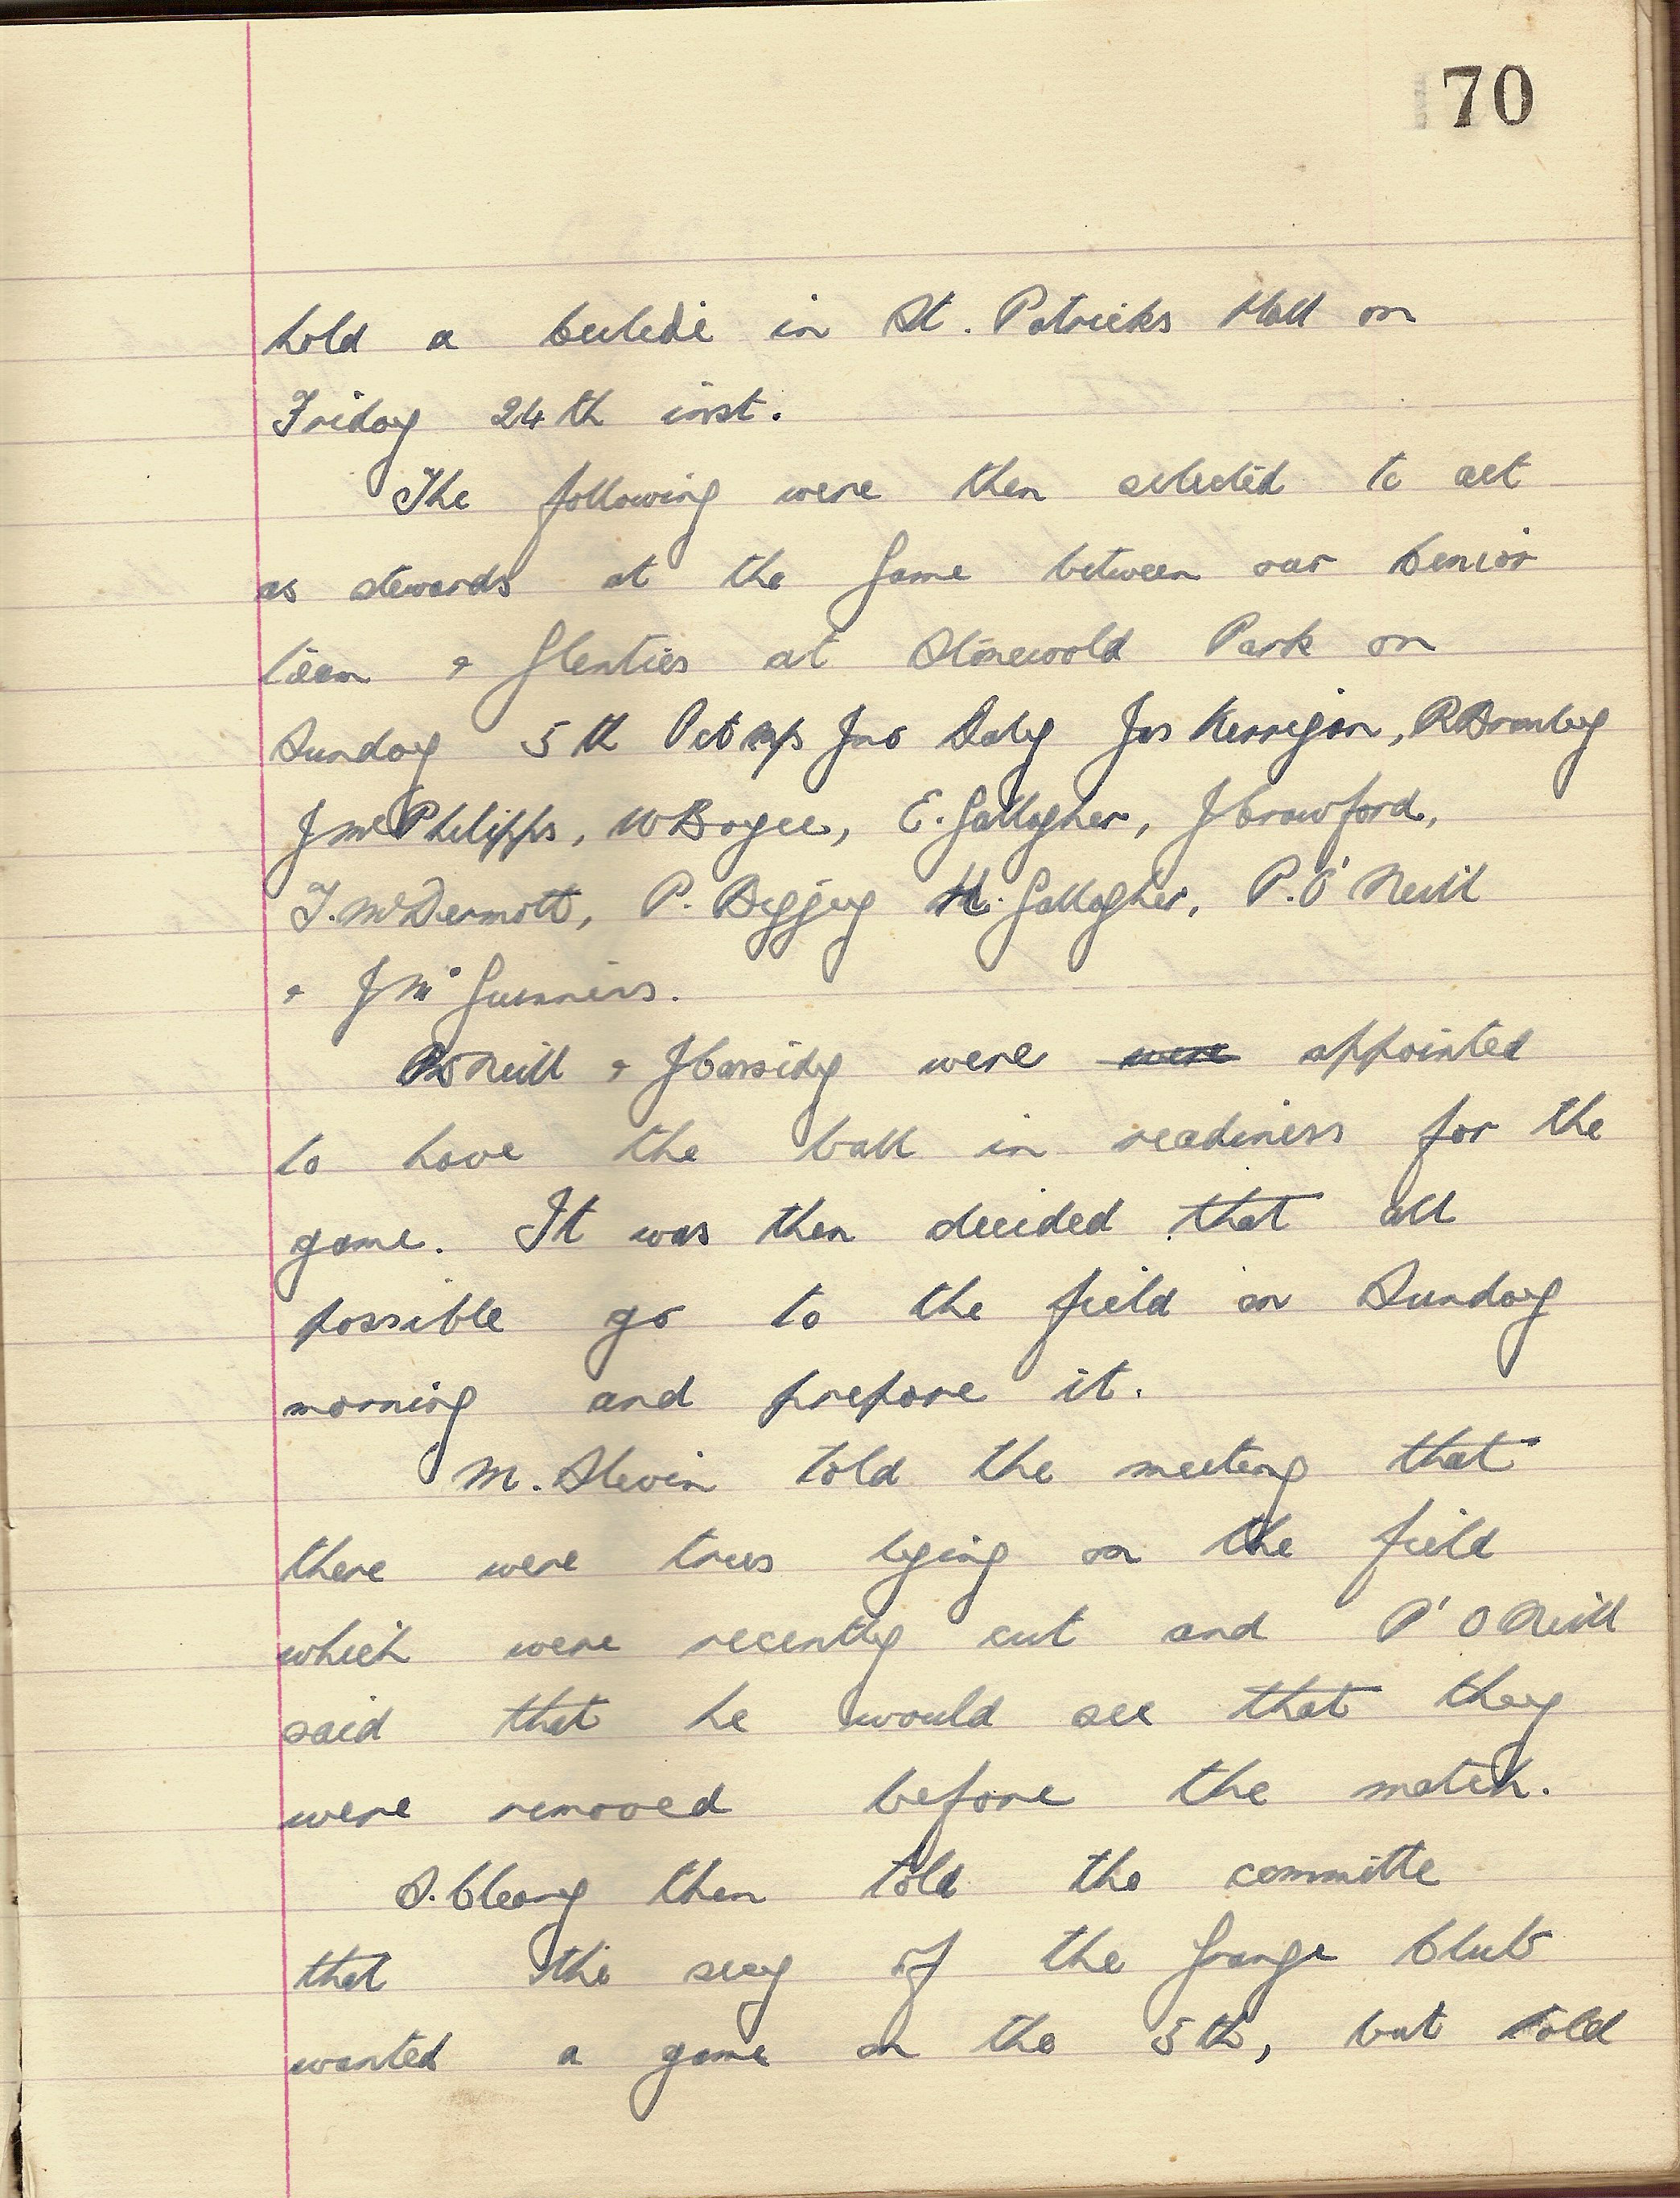 70
hold a Ceilidi in St. Patricks Hall on
Friday 24th inst.
The following were then selected to act
as stewards at the Game between our Senior
team & Glenties at Stonewold Park on
Sunday 5th Oct Jno Daly Jas Kerrigan, R Bromley
J McPhilipps, W Boyce, E. Gallagher, J Crawford,
T. McDermott, P. Begley H. Gallagher, P. O'Neill
& J Mc Guinness.
P O Neill & J Cassidy were were appointed
to have the ball in readiness for the
game. It was then decided that all
possible go to the field on Sunday
morning and prepare it.
M. Slevin told the meeting that
there were trees lying on the field
which were recently cut and P' O Neill
said that he would see that they
were removed before the match.
S. Cleary then told the committe
that the secy of the Grange Club
wanted a game on the 5th, but told